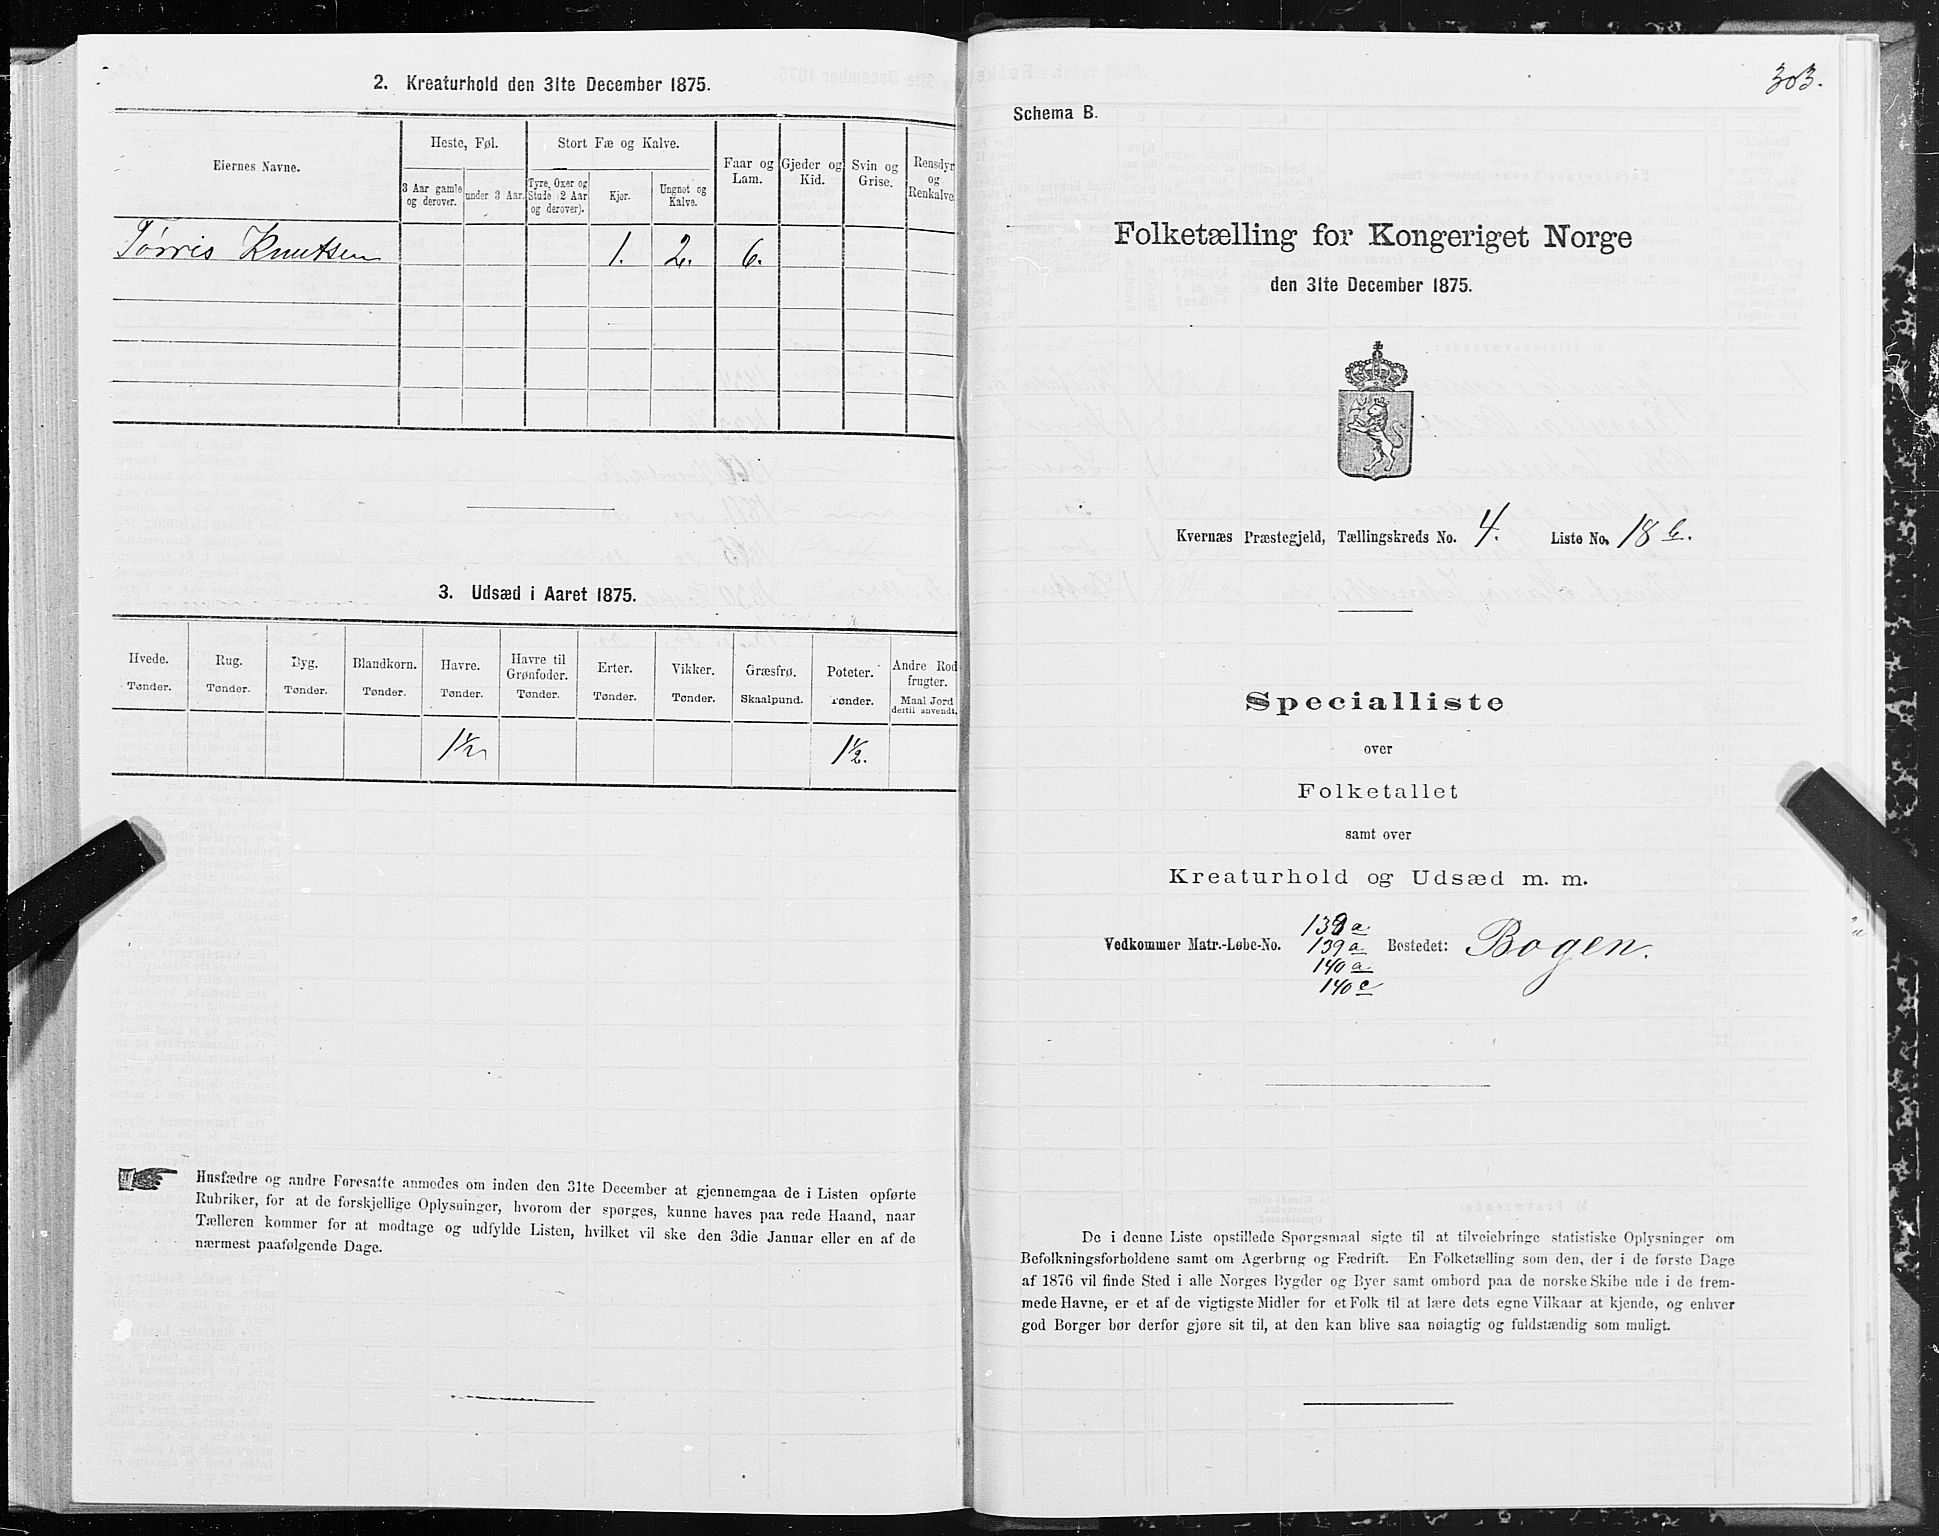 2. Kreaturhold den 31te December 1875.
Eiernes Navne.
Heste, Føl.
Stort Fæ og Kalve.
Faar og Lam.
Gjeder og Kid.
Svin og Grise.
Rensdyr og Renkalve
3 Aar gamle og derover.
under 3 Aar.
Tyre, Oxer og Stude (2 Aar og derover).
Kjør.
Ungnøt og Kalve.
Tørris Knutsen 1. 2. 6.
3. Udsæd i Aaret 1875.
Hvede. Rug. Byg. Blandkorn. Havre. Havre til Grønfoder. Erter. Vikker. Græsfrø. Poteter. Andre Rodfrugter.
Tønder. Tønder. Tønder. Tønder. Tønder. Tønder. Tønder. Tønder. Skaalpund. Tønder. Maal Jord dertil anvendt.
1½ 1½.
Husfædre og andre Foresatte anmodes om inden den 31te December at gjennemgaa de i Listen opførte
Rubriker, for at de forskjellige Oplysninger, hvorom der spørges, kunne haves paa rede Haand, naar
Tælleren kommer for at modtage og udfylde Listen, hvilket vil ske den 3die Januar eller en af de
nærmest paafølgende Dage.
303.
Schema B.
Folketælling for Kongeriget Norge
den 31te December 1875.
Kvernæs Præstegjeld, Tællingskreds No. 4. Liste No. 18 b.
Specialliste
over
Folketallet
samt over
Kreaturhold og Udsæd m. m.
Vedkommer Matr.-Løbe-No. 138 a
139 a Bostedet: Bogen.
140 a
140 c
De i denne Liste opstillede Spørgsmaal sigte til at tilveiebringe statistiske Oplysninger om
Befolkningsforholdene samt om Agerbrug og Fædrift. En Folketælling som den, der i de første Dage
af 1876 vil finde Sted i alle Norges Bygder og Byer samt ombord paa de norske Skibe ude i de frem-
mede Havne, er et af de vigtigste Midler for et Folk til at lære dets egne Vilkaar at kjende, og enhver
god Borger bør derfor gjøre sit til, at den kan blive saa nøiagtig og fuldstændig som muligt.